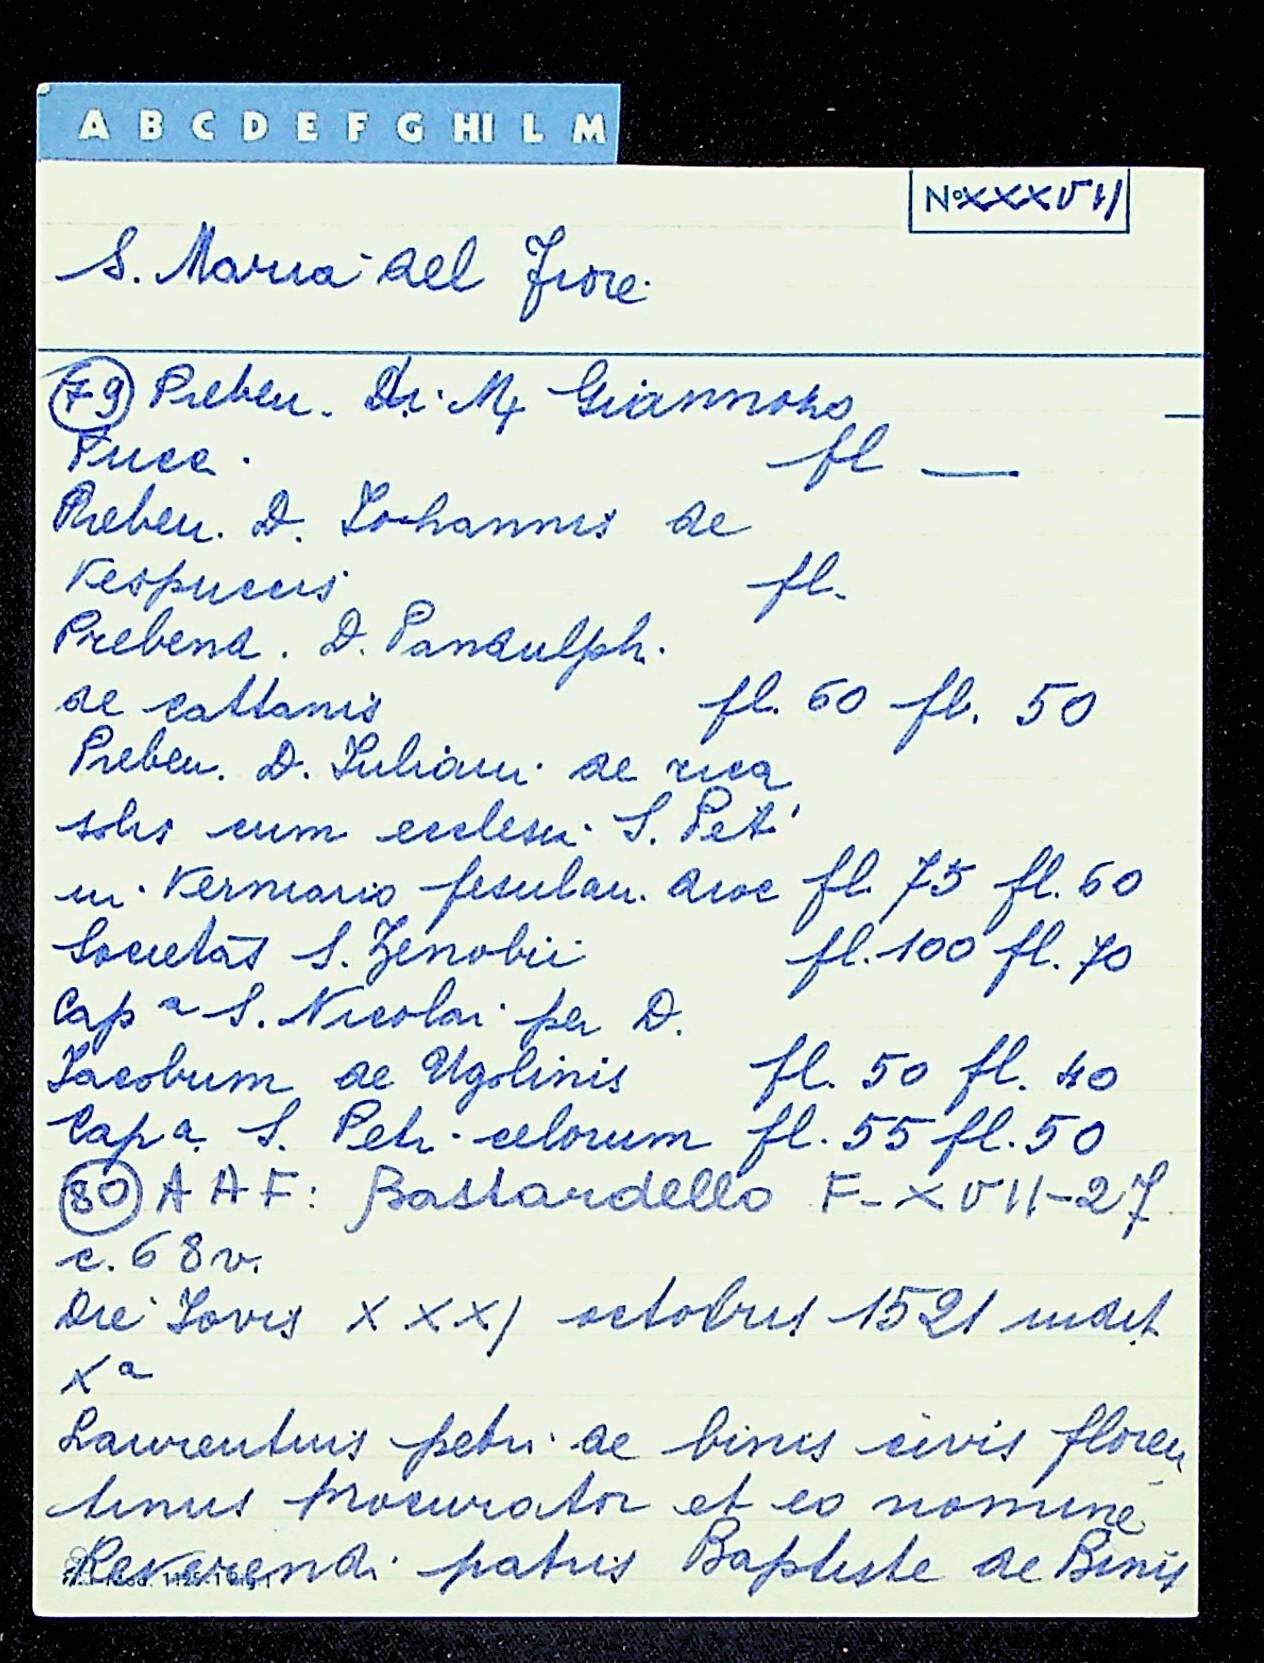 A B C D E F G HI L M
N° XXXVII
S. Maria del Fiore
79 Preben. Di. M. Giannozo
Pucc. fl —
Preben. D. Johannis de
Vespuccis fl.
Prebend. D. Pandulph.
de cattanis fl. 60 fl. 50
Preben. D. Juliani de rica
solis cum ecclesia S. Petri
in fesulan. dioc fl. 75 fl. 60
Societas S. Zenobii fl. 100 fl. 70
Cap a S. Nicolai per D.
Jacobum de Ugolinis fl. 50 fl. 40
Cap a. S. Petr. celorum fl. 55 fl. 50
80 A A F: Bastardello F-XVII-27
c. 68v.
Die Jovis XXXI octobris 1521 indict
Xa
Laurentius petri de binis civis floren
tinus procurator et eo nomine
Reverendi patris Baptiste de Binis